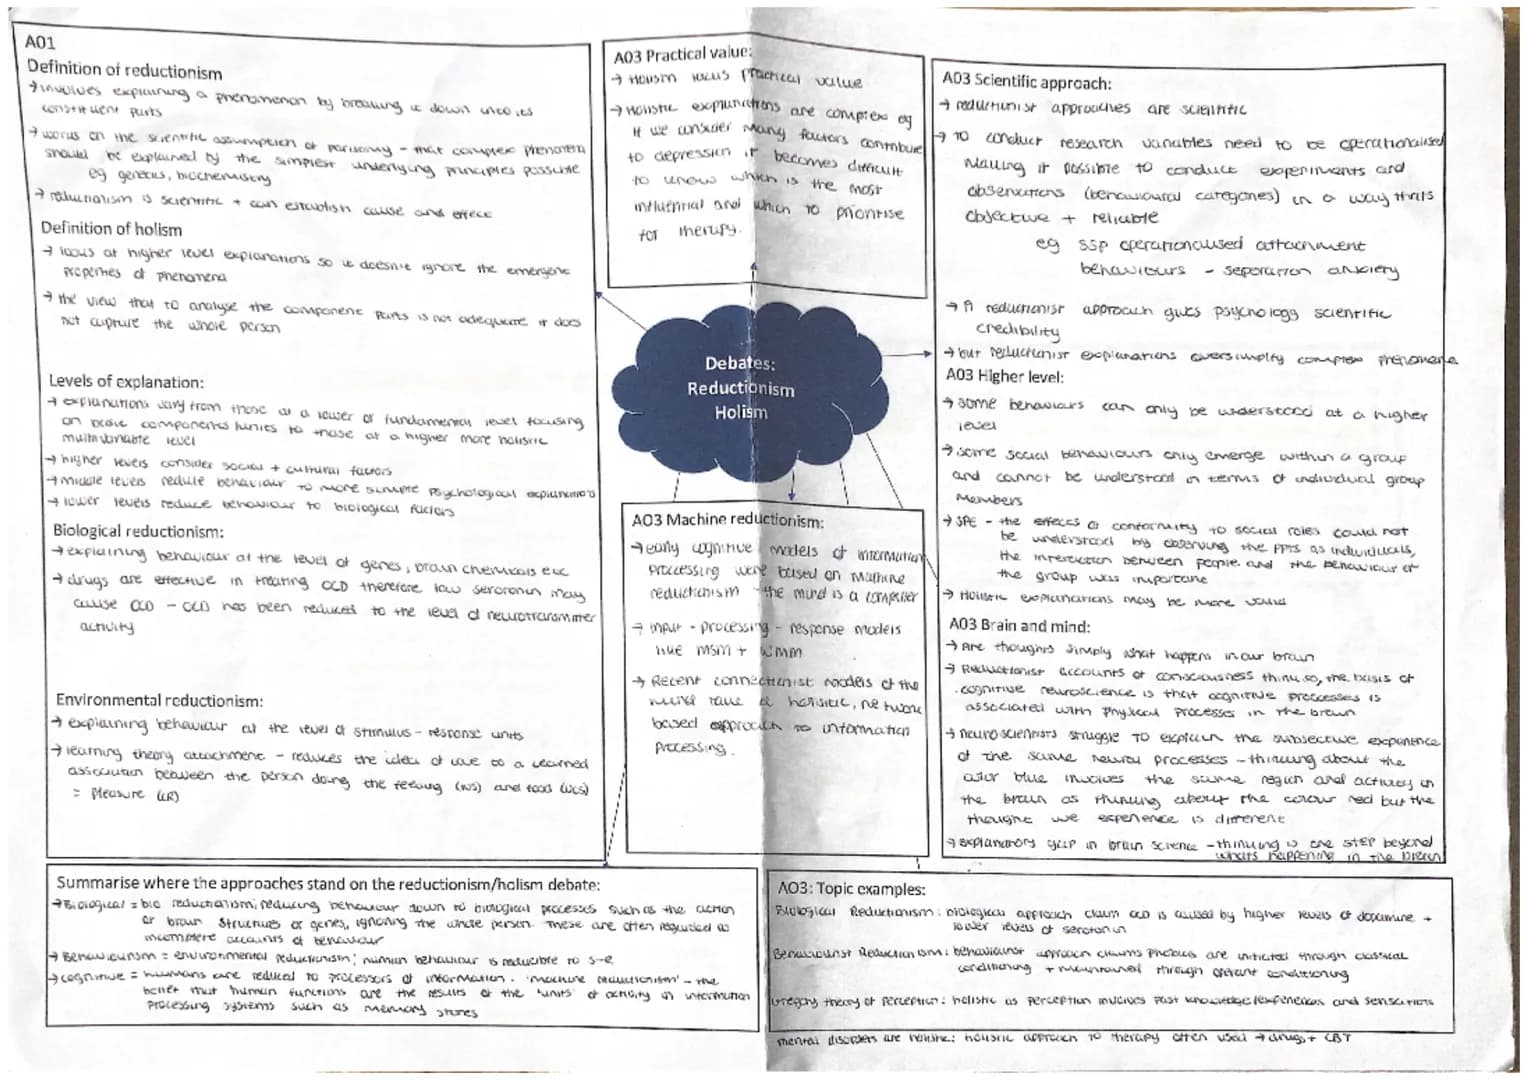 A01
Definition of reductionism
→ involves explaining a phenomenon by breaking it down into its
constituent parts
→ works on the scientific assumption of parisomy - that complex phenomena
should be explained by the simplest underlying principles possible
eg genetics, biochemistry
→ reductionism is scientific + can establish cause and effect
Definition of holism
→ looks at higher level explanations so it doesn't ignore the emergent
properties of phenomena
→ the view that to analyse the component parts is not adequate it does
not capture the whole person
Levels of explanation:
→ explanations vary from those at a lower or fundamental level focusing
on basic components/units to those at a higher more holistic
multivariable level
→ higher levels consider social + cultural factors
→ middle levels reduce behaviour to more simple psychological explanations
→ lower levels reduce behaviour to biological factors
Biological reductionism:
→ explaining behaviour at the level of genes, brain chemicals etc
→ drugs are effective in treating OCD therefore low serotonin may
cause OCD - OCD has been reduced to the level of neurotransmitter
activity
Environmental reductionism:
→ explaining behaviour at the level of stimulus - response units
→ learning theory attachment - reduces the idea of love to a learned
association between the person doing the feeding (NS) and food (UCS)
= pleasure (CR)
A03 Practical value:
→ Holism lacks practical value
→ Holistic explanations are complex eg
if we consider many factors contribute
to depression it becomes difficult
to know which is the most
influential and which to prioritise
for therapy.
Debates:
Reductionism
Holism
A03 Machine reductionism:
→ early cognitive models of information
processing were based on machine
reductionism - the mind is a computer
→ input - processing - response models
like MSM + WMM
→ Recent connectionist models of the
mind take a holistic, network
based approach to information
processing.
A03 Scientific approach:
→ reductionist approaches are scientific
→ To conduct research variables need to be operationalised
making it possible to conduct experiments and
observations (behavioural categories) in a way thats
objective + reliable
eg SSP operationalised attachment
behaviours - separation anxiety
→ A reductionist approach gives psychology scientific
credibility
→ but reductionist explanations oversimplify complex phenomena
A03 Higher level:
→ some behaviours can only be understood at a higher
level
→ some social behaviours only emerge within a group
and cannot be understood in terms of individual group
members
→ SPE - the effects of conformity to social roles could not
be understood by observing the PPTS as individuals,
the interaction between people and the behaviour of
the group was important
→ Holistic explanations may be more valid
A03 Brain and mind:
→ Are thoughts simply what happens in our brain
→ Reductionist accounts of consciousness think so, the basis of
cognitive neuroscience is that cognitive processes is
associated with physical processes in the brain
→ neuroscientists struggle to explain the subjective experience
of the same neural processes - thinking about the
color blue involves the same region and activity in
the brain as thinking about the colour red but the
thought we experience is different
→ explanatory gap in brain science - thinking is one step beyond
whats happening in the brain
Summarise where the approaches stand on the reductionism/holism debate:
→ Biological = bio reductionism; reducing behaviour down to biological processes such as the action
or brain structures or genes, ignoring the whole person. These are often regarded as
incomplete accounts of behaviour
→ Behaviourism = environmental reductionism; human behaviour is reducible to S-R
→ cognitive = humans are reduced to processors of information. 'machine reductionism' - the
belief that human functions are the results of the 'units' of activity in information
processing systems such as memory stores
A03: Topic examples:
Biological Reductionism: biological approach claim OCD is caused by higher levels of dopamine +
lower levels of serotonin
Behaviourist Reductionism: behaviourist approach claims phobias are initiated through classical
conditioning + maintained through operant conditioning
Gregory theory of perception: holistic as perception involves past knowledge/experiences and sensations
mental disorders are holistic: holistic approach to therapy often used → drugs + CBT